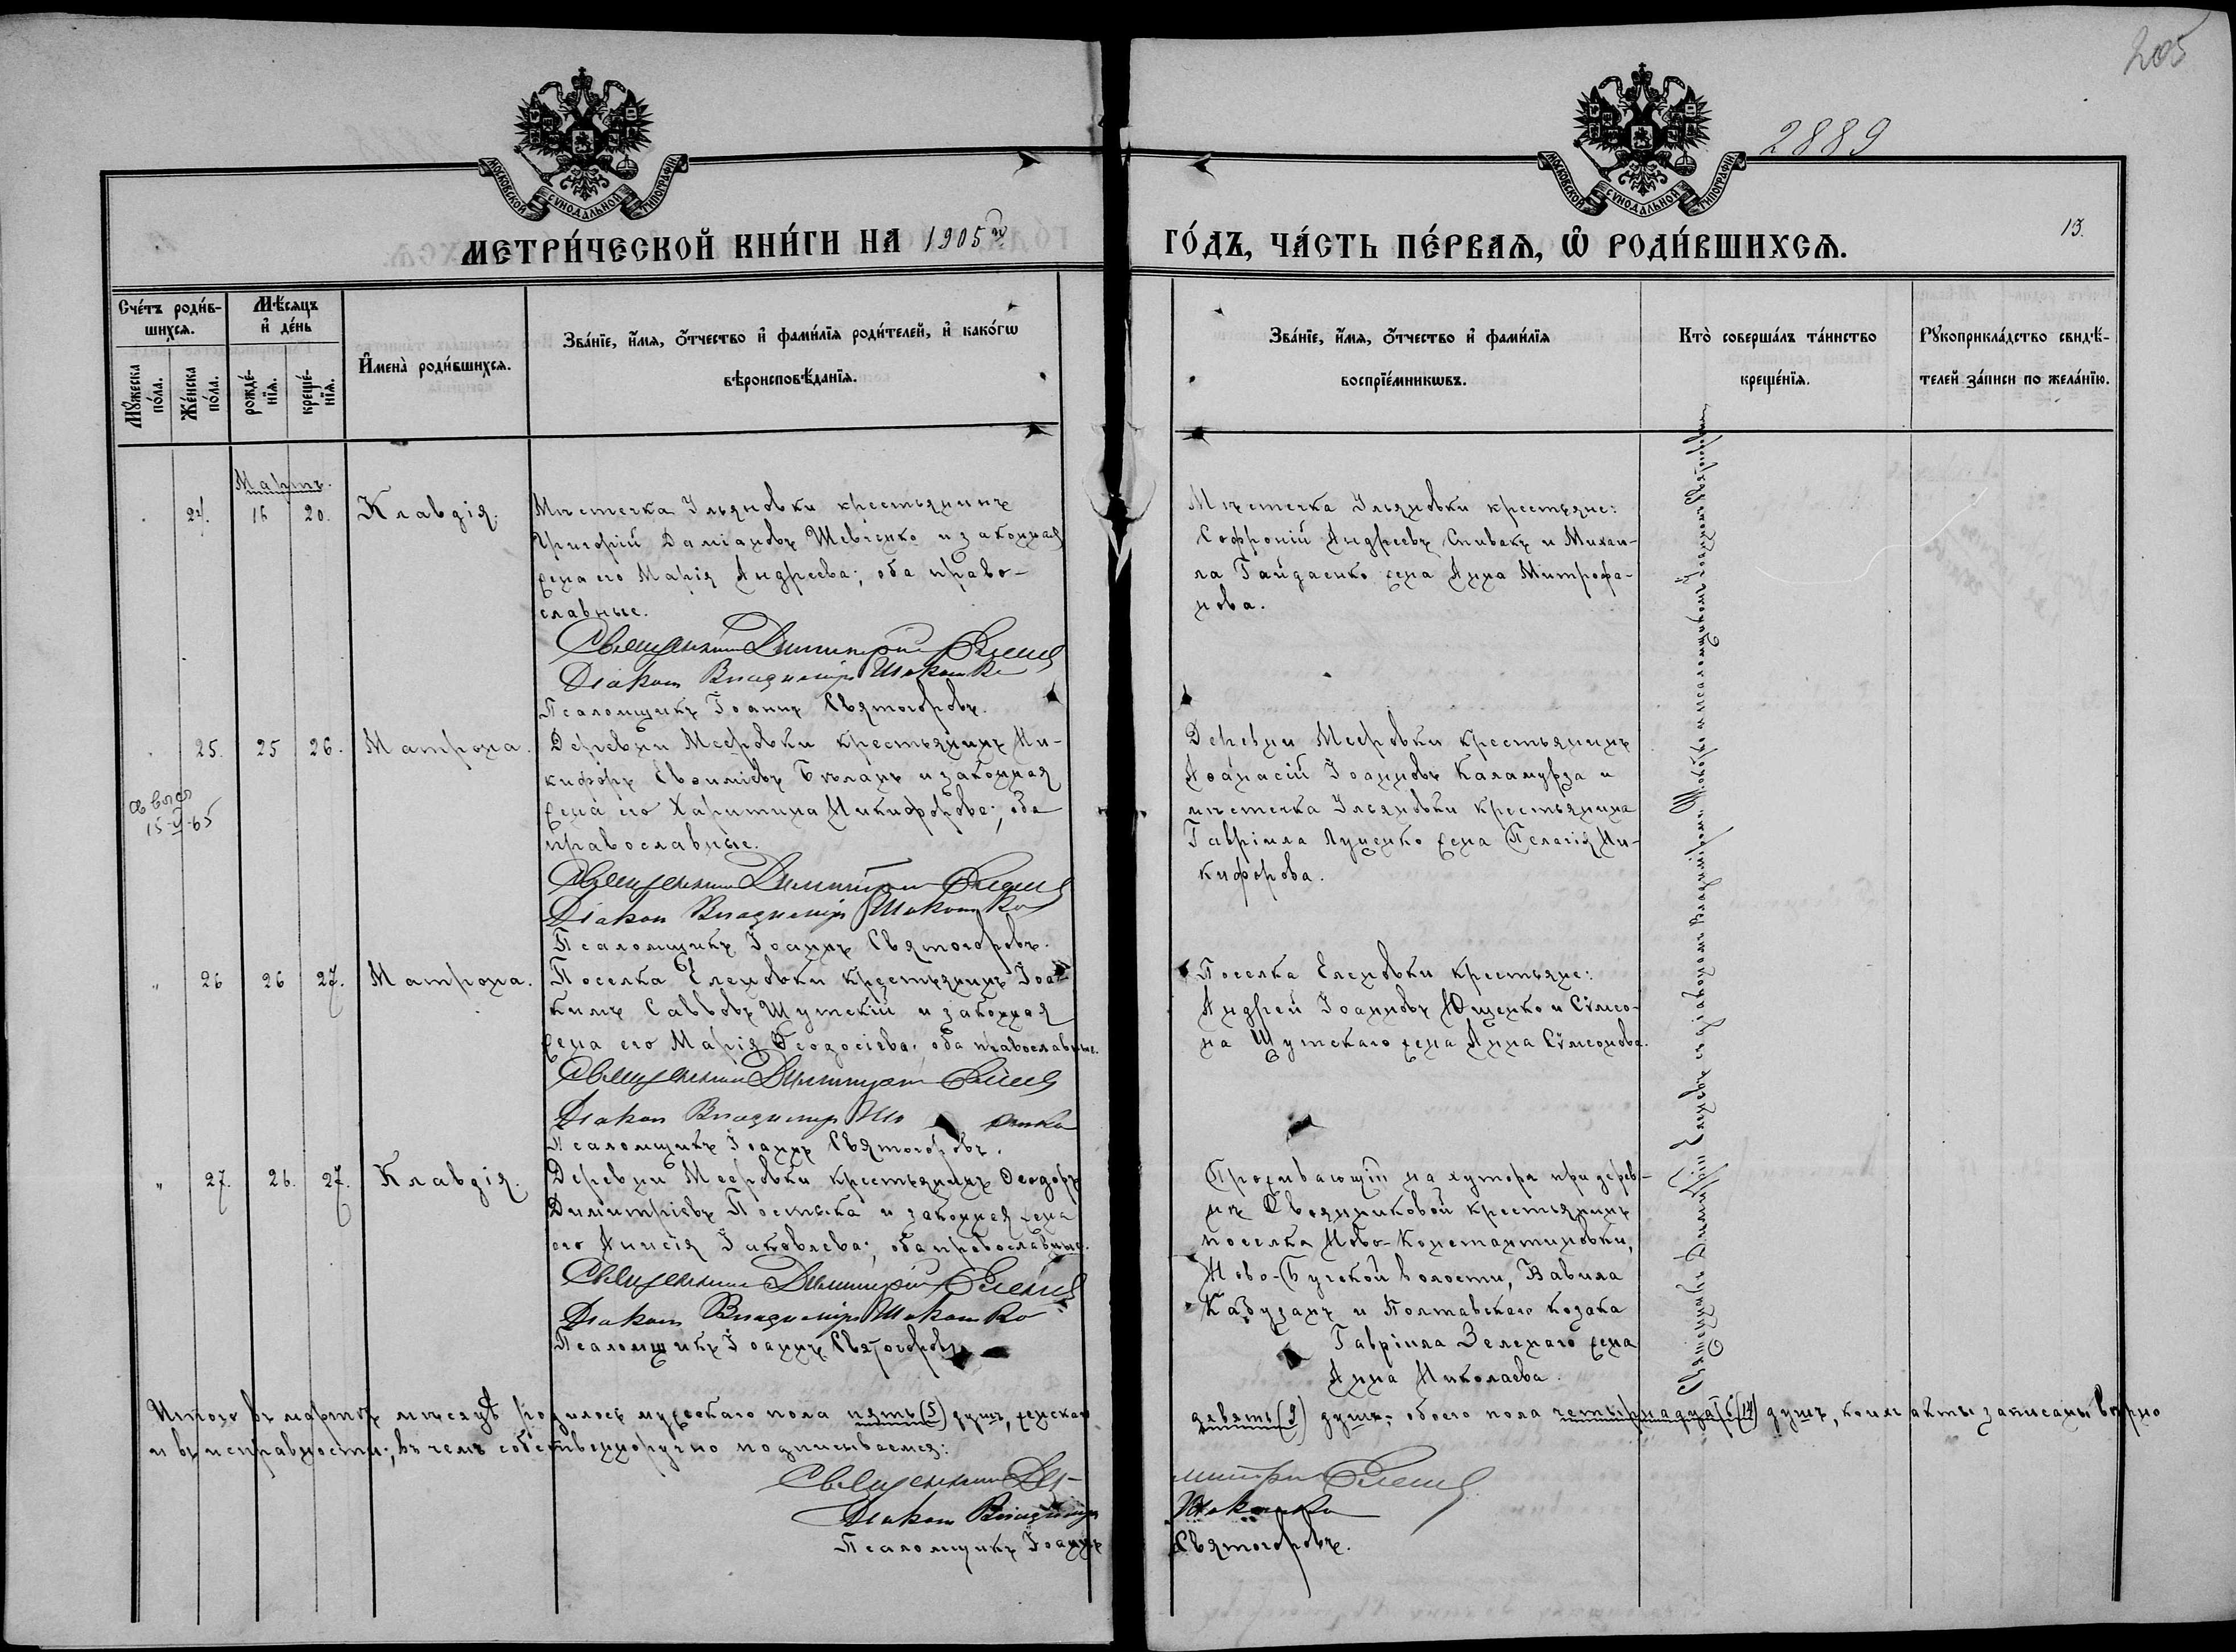 205
2889
13.
МОСКОВСКОЙ СѴНОДАЛЬНОЙ ТИПОГРАФІИ
МОСКОВСКОЙ СѴНОДАЛЬНОЙ ТИПОГРАФІИ
МЕТРИ́ЧЕСКОЙ КНИ́ГИ НА 1905й ГО́ДЪ, ЧА́СТЬ ПЕ́РВАЯ, Ѡ РОДИ́ВШИХСЯ.
Сче́тъ роди́в-
шихся.
Мѣ́сяцъ
и де́нь
Мꙋ́жеска
по́ла.
Же́нска
по́ла.
рожде́-
нїя.
креще́-
нїя.
Имена̀ роди́вшихся.
Зва́нїе, и́мя, ѻ́тчество и фами́лїя роди́телей, и како́гѡ
вѣроисповѣ́данїя.
Зва́нїе, и́мя, ѻ́тчество и фами́лїя
воспрїе́мникѡвъ.
Кто̀ соверша́лъ та́инство
креще́нїя.
Рꙋкоприкла́дство свидѣ́-
телей за́писи по жела́нїю.
Мартъ.
24. 16 20. Клавдія.
Мѣстечка Ульяновки крестьянинъ
Григорій Даміановъ Шевченко и законная
жена его Марія Андреева; оба право-
славные.
Священникъ Димитрій
Діаконъ Владиміръ Шокотко
Псаломщикъ Іоаннъ Святогоровъ.
Мѣстечка Ульяновки крестьяне:
Софроній Андреевъ Спивакъ и Михаи-
ла Гайдаенко жена Анна Митрофа-
нова.
25. 25 26. Матрона.
15-V-65
Деревни Мееровки крестьянинъ Ни-
кифоръ Евѳиміевъ Бѣланъ и законная
жена его Харитина Никифорова; оба
православные.
Священникъ Димитрій
Діаконъ Владиміръ Шокотко
Псаломщикъ Іоаннъ Святогоровъ.
Деревни Мееровки крестьянинъ
Аѳанасій Іоанновъ Каламурза и
мѣстечка Ульяновки крестьянина
Гавріила Луценко жена Пелагія Ни-
кифорова.
26 26 27. Матрона.
Поселка Еленовки крестьянинъ Іоа-
кимъ Саввовъ Шутскій и законная
жена его Марія Ѳеодосіева; оба православные.
Священникъ Димитрій
Діаконъ Владиміръ
Псаломщикъ Іоаннъ Святогоровъ.
Поселка Еленовки крестьяне:
Андрей Іоанновъ Ющенко и Сѵмео-
на Шутскаго жена Анна Сѵмеонова.
27. 26. 27. Клавдія.
Деревни Мееровки крестьянинъ Ѳеодоръ
Димитріевъ Постыка и законная жена
его Анисія Іаковлева; оба православные.
Священникъ Димитрій
Діаконъ Владиміръ Шокотко
Псаломщикъ Іоаннъ Святогоровъ
Проживающій на хуторѣ при дерев-
нѣ крестьянинъ
поселка Ново-Константиновки,
Ново-Бугской волости, Вавила
Кабузанъ и Полтавскаго козака
Гавріила Зеленаго жена
Анна Николаева.
Священникъ Димитрій съ діакономъ Владиміромъ Шокотко и псаломщикомъ Іоанномъ Святогоровымъ
Итого въ мартѣ мѣсяцѣ родилось мужескаго пола пять (5) душъ, женскаго девять (9) душъ; обоего пола четырнадцать (14) душъ, коихъ акты записаны вѣрно
и въ исправности; въ чемъ собственноручно подписываемся:
Священникъ Димитрій
Діаконъ Владиміръ Шокотко
Псаломщикъ Іоаннъ Святогоровъ.